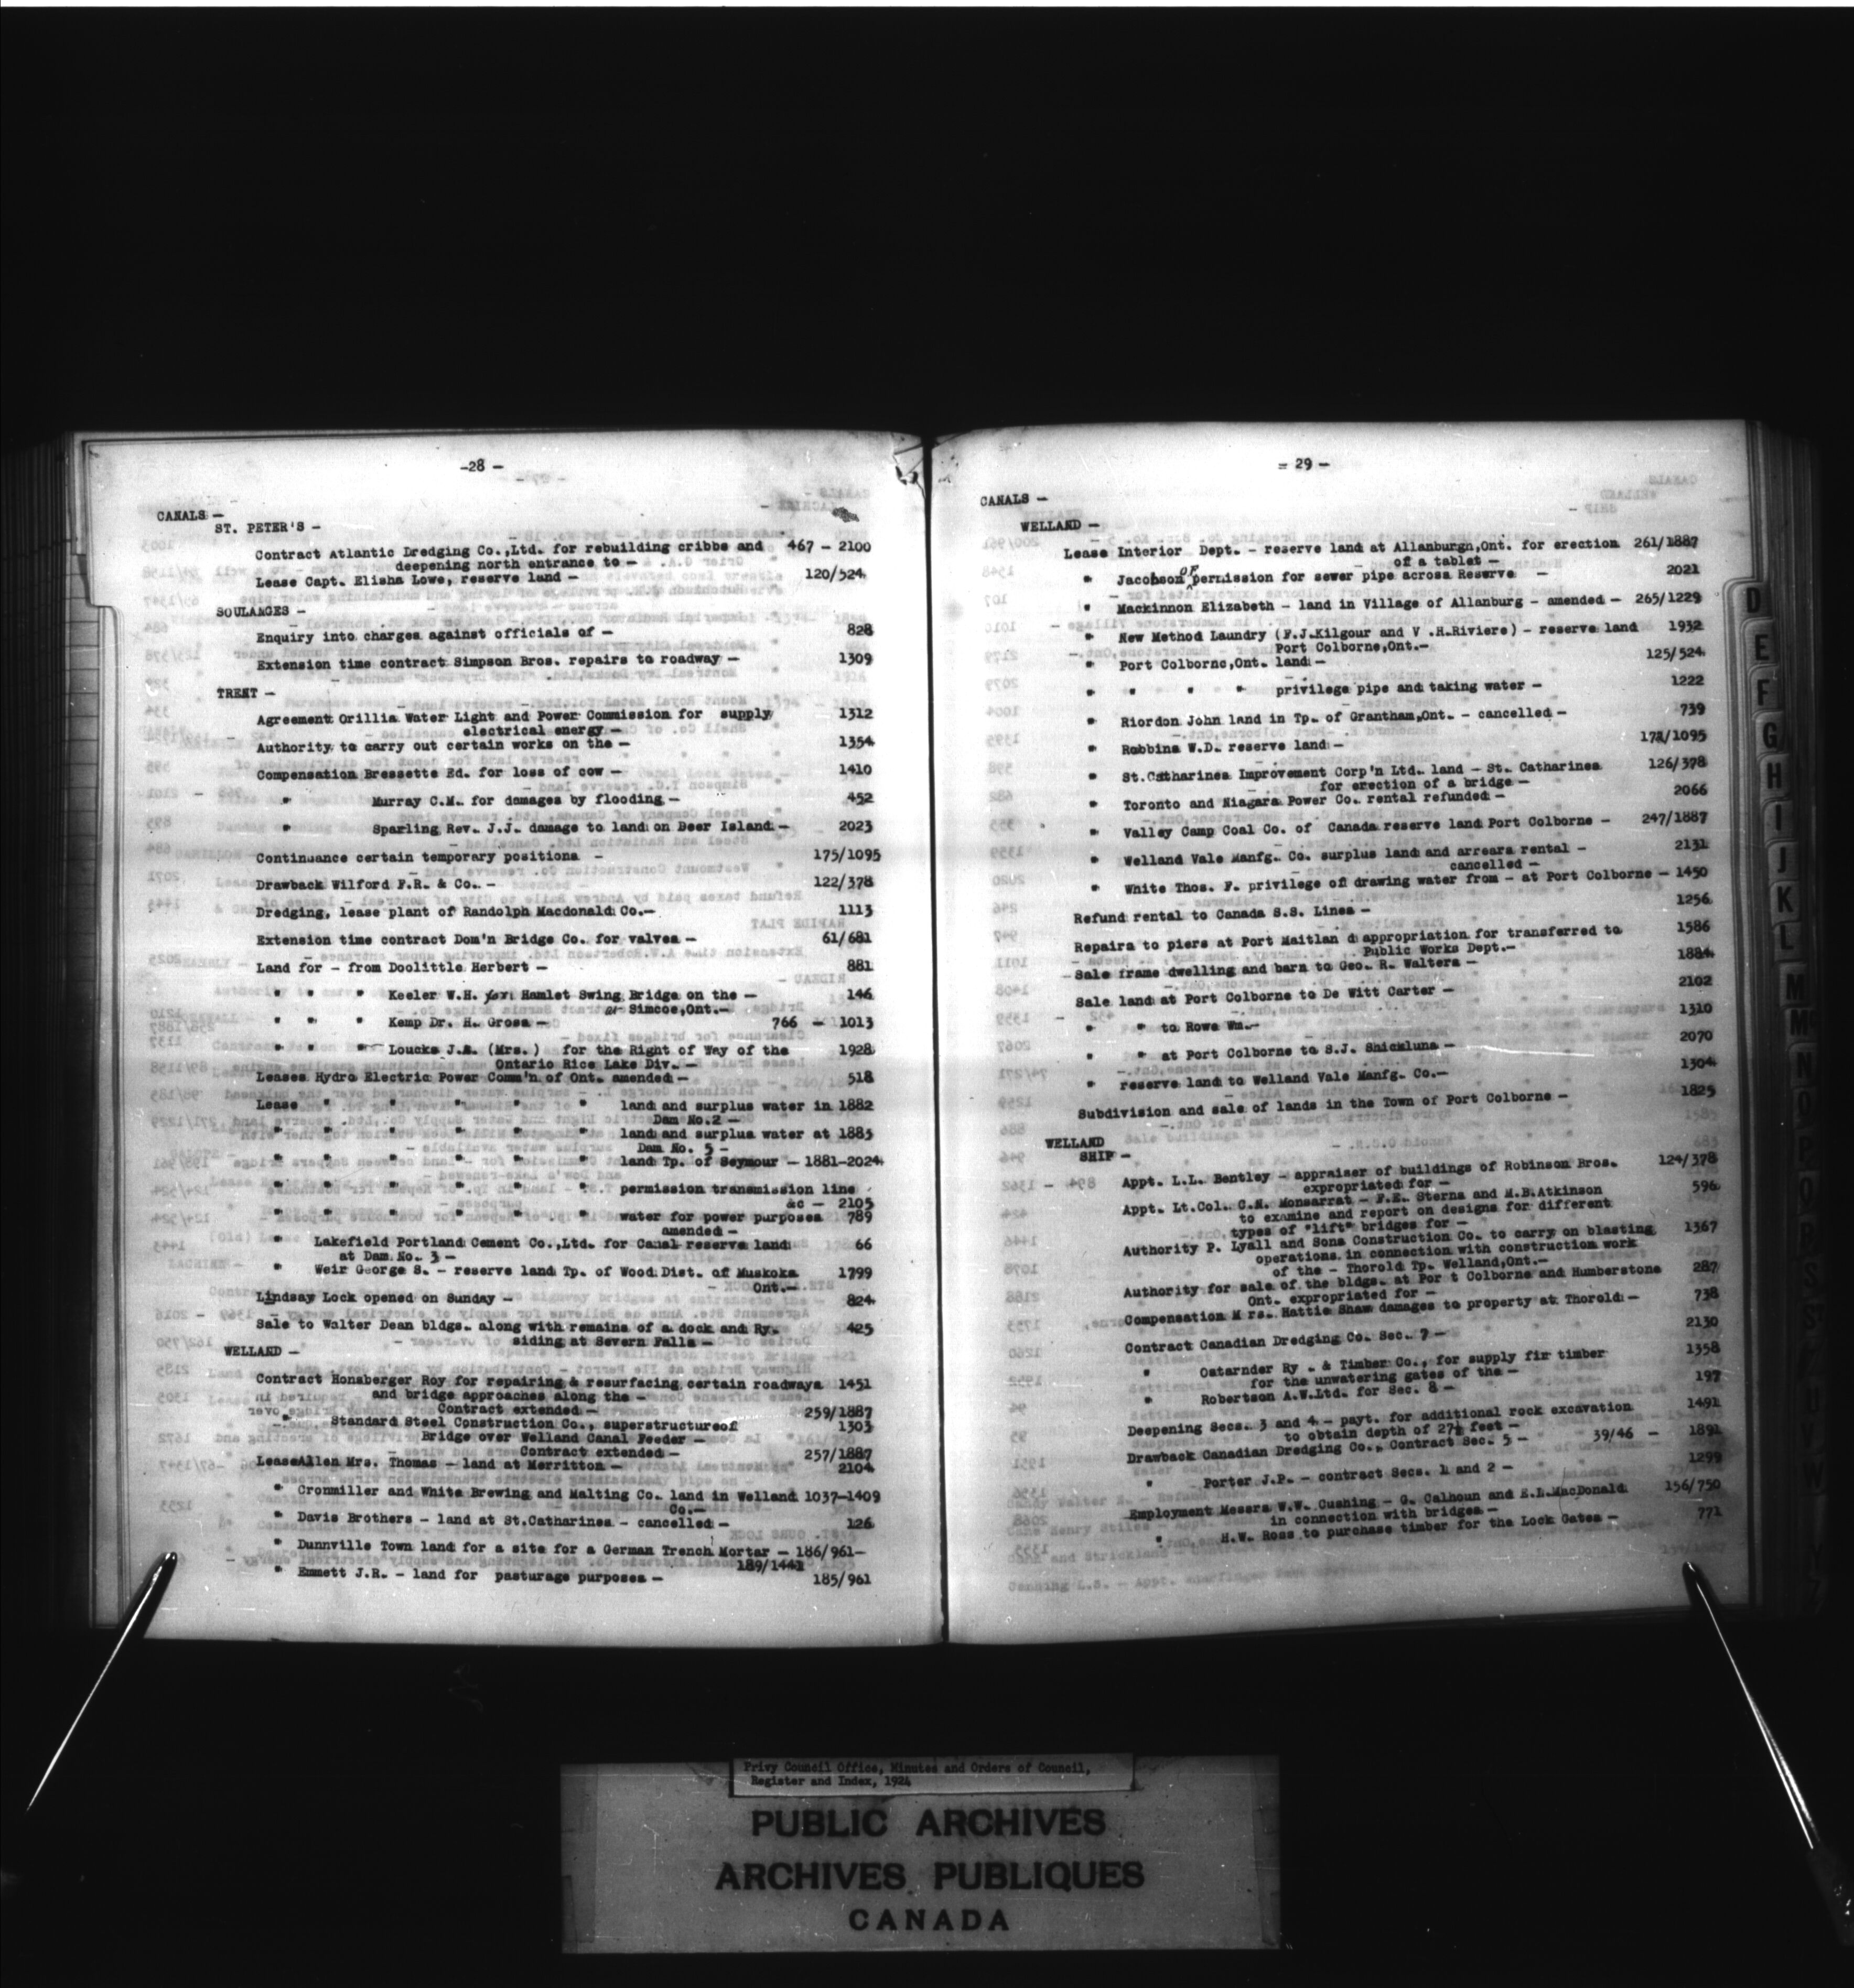 -28 -
CANALS -
ST. PETER'S -
Contract Atlantic Dredging Co.,Ltd. for rebuilding cribbs and 467 - 2100
deepening north entrance to -
Lease Capt. Elisha Lowe, reserve land - 120/524
SOULANGES -
Enquiry into charges against officials of - 828
Extension time contract Simpson Bros. repairs to roadway - 1309
TRENT -
Agreement Orillia Water Light and Power Commission for supply 1312
electrical energy -
Authority to carry out certain works on the - 1354
Compensation Bressette Ed. for loss of cow - 1410
" Murray C.M. for damages by flooding - 452
" Sparling Rev. J.J. damage to land on Deer Island - 2023
Continuance certain temporary positions - 175/1095
Drawback Wilford F.R. & Co. - 122/378
Dredging, lease plant of Randolph Macdonald Co.- 1113
Extension time contract Dom'n Bridge Co. for valves - 61/681
Land for - from Doolittle Herbert - 881
" " " Keeler W.H. for Hamlet Swing Bridge on the - 146
at Simcoe,Ont.-
" " " Kemp Dr. H. Grosa - 766 - 1013
" " " Loucks J.A. (Mrs.) for the Right of Way of the 1928
Ontario Rice Lake Div. -
Leases Hydro Electric Power Comm'n of Ont. amended - 518
Lease " " " " " land and surplus water in 1882
Dam No.2 -
" " " " " " land and surplus water at 1883
Dam No. 5 -
" " " " " " land Tp. of Seymour - 1881-2024
" " " " " " permission transmission line
&c - 2105
" " " " " " water for power purposes 789
amended -
" Lakefield Portland Cement Co.,Ltd. for Canal reserve land 66
at Dam No. 3 -
" Weir George S. - reserve land Tp. of Wood Dist. of Muskoka 1799
Ont.-
Lindsay Lock opened on Sunday - 824
Sale to Walter Dean bldgs. along with remains of a dock and Ry. 425
siding at Severn Falls -
WELLAND -
Contract Honsberger Roy for repairing & resurfacing certain roadways 1451
and bridge approaches along the -
Contract extended - 259/1887
" Standard Steel Construction Co., superstructureof 1303
Bridge over Welland Canal Feeder -
Contract extended - 257/1887
LeaseAllen Mrs. Thomas - land at Merritton - 2104
" Cronmiller and White Brewing and Malting Co. land in Welland 1037-1409
Co.-
" Davis Brothers - land at St.Catharines - cancelled - 126
" Dunnville Town land for a site for a German Trench Mortar - 186/961-
189/1441
" Emmett J.R. - land for pasturage purposes - 185/961
= 29 -
CANALS -
WELLAND -
Lease Interior Dept. - reserve land at Allanburgn,Ont. for erection 261/1887
of a tablet -
" Jacobson OF permission for sewer pipe across Reserve - 2021
" Mackinnon Elizabeth - land in Village of Allanburg - amended - 265/1229
" New Method Laundry (F.J.Kilgour and V .H.Riviere) - reserve land 1932
Port Colborne,Ont.-
" Port Colborne,Ont. land - 125/524
" " " " privilege pipe and taking water - 1222
" Riordon John land in Tp. of Grantham,Ont. - cancelled - 739
" Robbins W.D. reserve land - 172/1095
" St.Catharines Improvement Corp'n Ltd. land - St. Catharines 126/378
for erection of a bridge -
" Toronto and Niagara Power Co. rental refunded - 2066
" Valley Camp Coal Co. of Canada reserve land Port Colborne - 247/1887
" Welland Vale Manfg. Co. surplus land and arrears rental - 2131
cancelled -
" White Thos. F. privilege of drawing water from - at Port Colborne - 1450
Refund rental to Canada S.S. Lines - 1256
Repairs to piers at Port Maitlan d appropriation for transferred to 1586
Public Works Dept.-
Sale frame dwelling and barn to Geo. R. Walters - 1884
Sale land at Port Colborne to De Witt Carter - 2102
" " to Rowe Wm.- 1310
" " at Port Colborne to S.J. Shickluna - 2070
" reserve land to Welland Vale Manfg. Co.- 1304
Subdivision and sale of lands in the Town of Port Colborne - 1825
WELLAND
SHIP -
Appt. L.L. Bentley - appraiser of buildings of Robinson Bros. 124/378
expropriated for -
Appt. Lt.Col. C.N. Monsarrat - F.E. Sterns and M.B.Atkinson 596
to examine and report on designs for different
types of "lift" bridges for -
Authority P. Lyall and Sons Construction Co. to carry on blasting 1367
operations in connection with construction work
of the - Thorold Tp. Welland,Ont.-
Authority for sale of the bldgs. at Por t Colborne and Humberstone 287
Ont. expropriated for -
Compensation M rs. Hattie Shaw damages to property at Thorold - 738
Contract Canadian Dredging Co. Sec. 7 - 2130
" Ostarnder Ry . & Timber Co., for supply fir timber 1358
for the unwatering gates of the -
" Robertson A.W.Ltd. for Sec. 8 - 197
Deepening Secs. 3 and 4 - payt. for additional rock excavation 1491
to obtain depth of 27½ feet -
Drawback Canadian Dredging Co., Contract Sec. 5 - 39/46 - 1891
" Porter J.P. - contract Secs. 1 and 2 - 1299
Employment Messrs W.W. Cushing - G. Calhoun and E.L.MacDonald 156/750
in connection with bridges -
" H.W. Ross to purchase timber for the Lock Gates - 771
D
E
F
G
H
I
J
K
L
M
Mc
N
O
P
Q
R
S
T
U
V
W
Privy Council Office, Minutes and Orders of Council,
Register and Index, 1924
PUBLIC ARCHIVES
ARCHIVES PUBLIQUES
CANADA